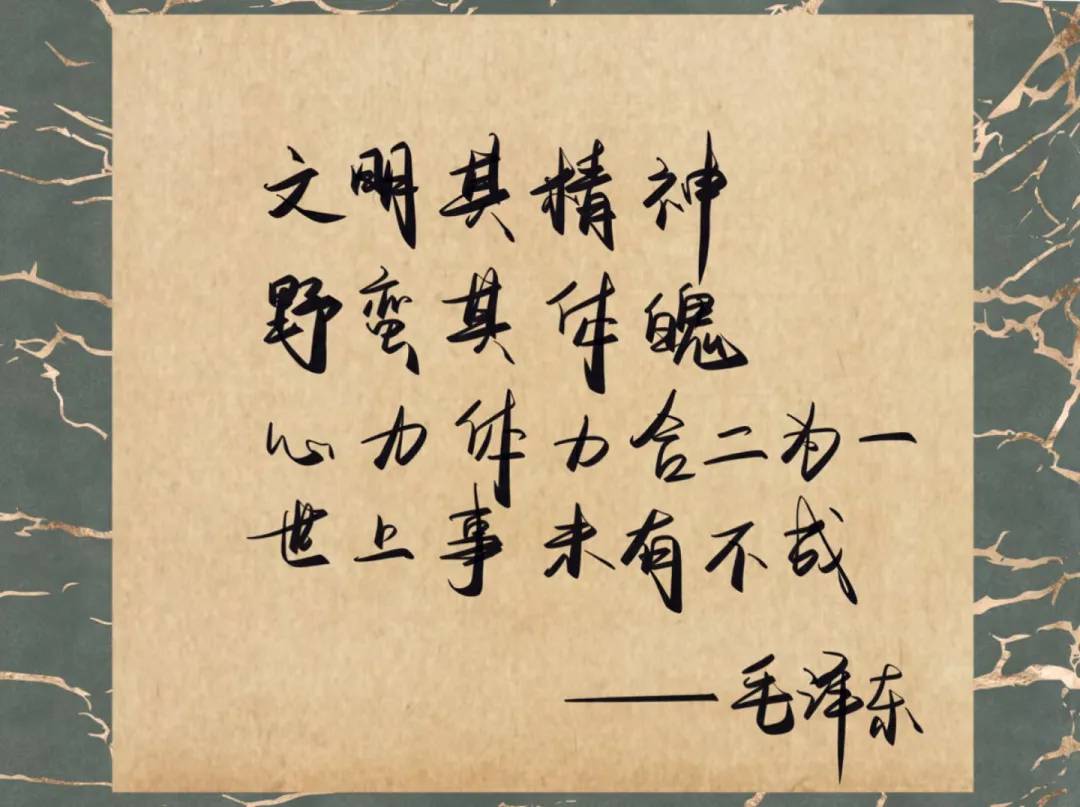 文明其精神
野蛮其体魄
心力体力合二为一
世上事未有不成
——毛泽东